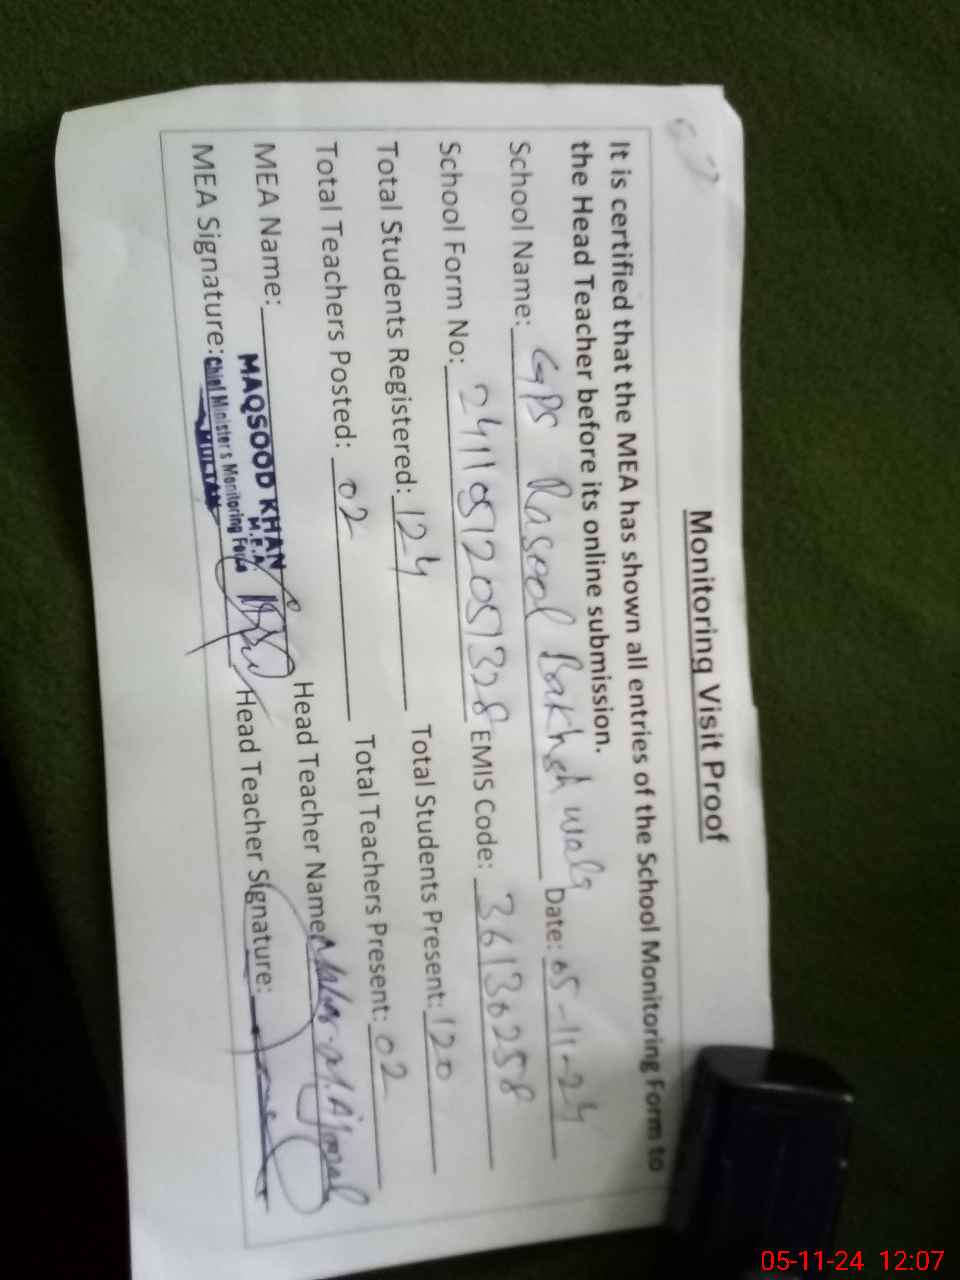 Monitoring Visit Proof
It is certified that the MEA has shown all entries of the School Monitoring Form to
the Head Teacher before its online submission.
School Name: GPS Rasool Bakhsh wala Date: 05-11-24
School Form No: 24110512051328 EMIS Code: 36130258
Total Students Registered: 124 Total Students Present: 120
Total Teachers Posted: 02 Total Teachers Present: 02
MEA Name: MAQSOOD KHAN Head Teacher Name: Ajmal
M.E.A
MEA Signature: Chief Minister's Monitoring Force Head Teacher Signature:
MULTAN
05-11-24 12:07